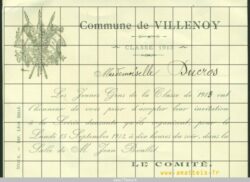 Commune de VILLENOY
CLASSE 1912
Mademoiselle Ducros
Les Jeunes Gens de la Classe de 1912 ont
l'honneur de vous prier d'accepter leur invitation
à la Soirée dansante qu'ils donneront le
Lundi 15 Septembre 1912, à dix heures du soir, dans la
Salle de M. Jean
LE COMITÉ.
www.amatteis.fr